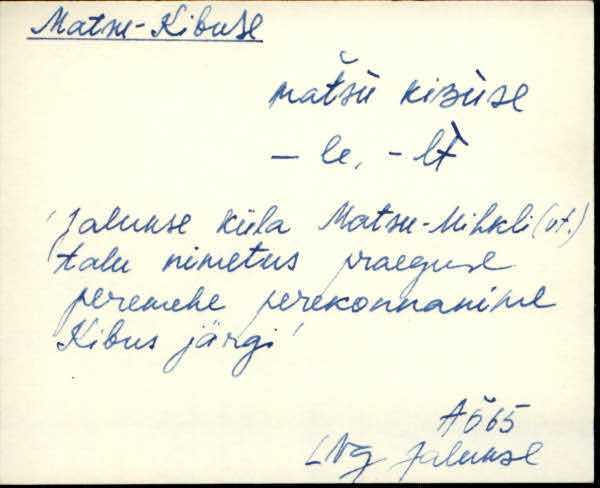 Matsu-Kibuse
mat̆sŭ kiʙŭse
– le, – lt̀
'Jalukse küla Matsu-Mihkli (vt.)
talu nimetus praeguse
peremehe perekonnanime
Kibus järgi'
AÕ65
LNg Jalukse